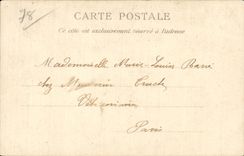 78
CARTE POSTALE
Ce côté est exclusivement réservé à l'adresse
Mademoiselle Marie-Louise Barré
chez Monsieur
Vétérinaire
Paris